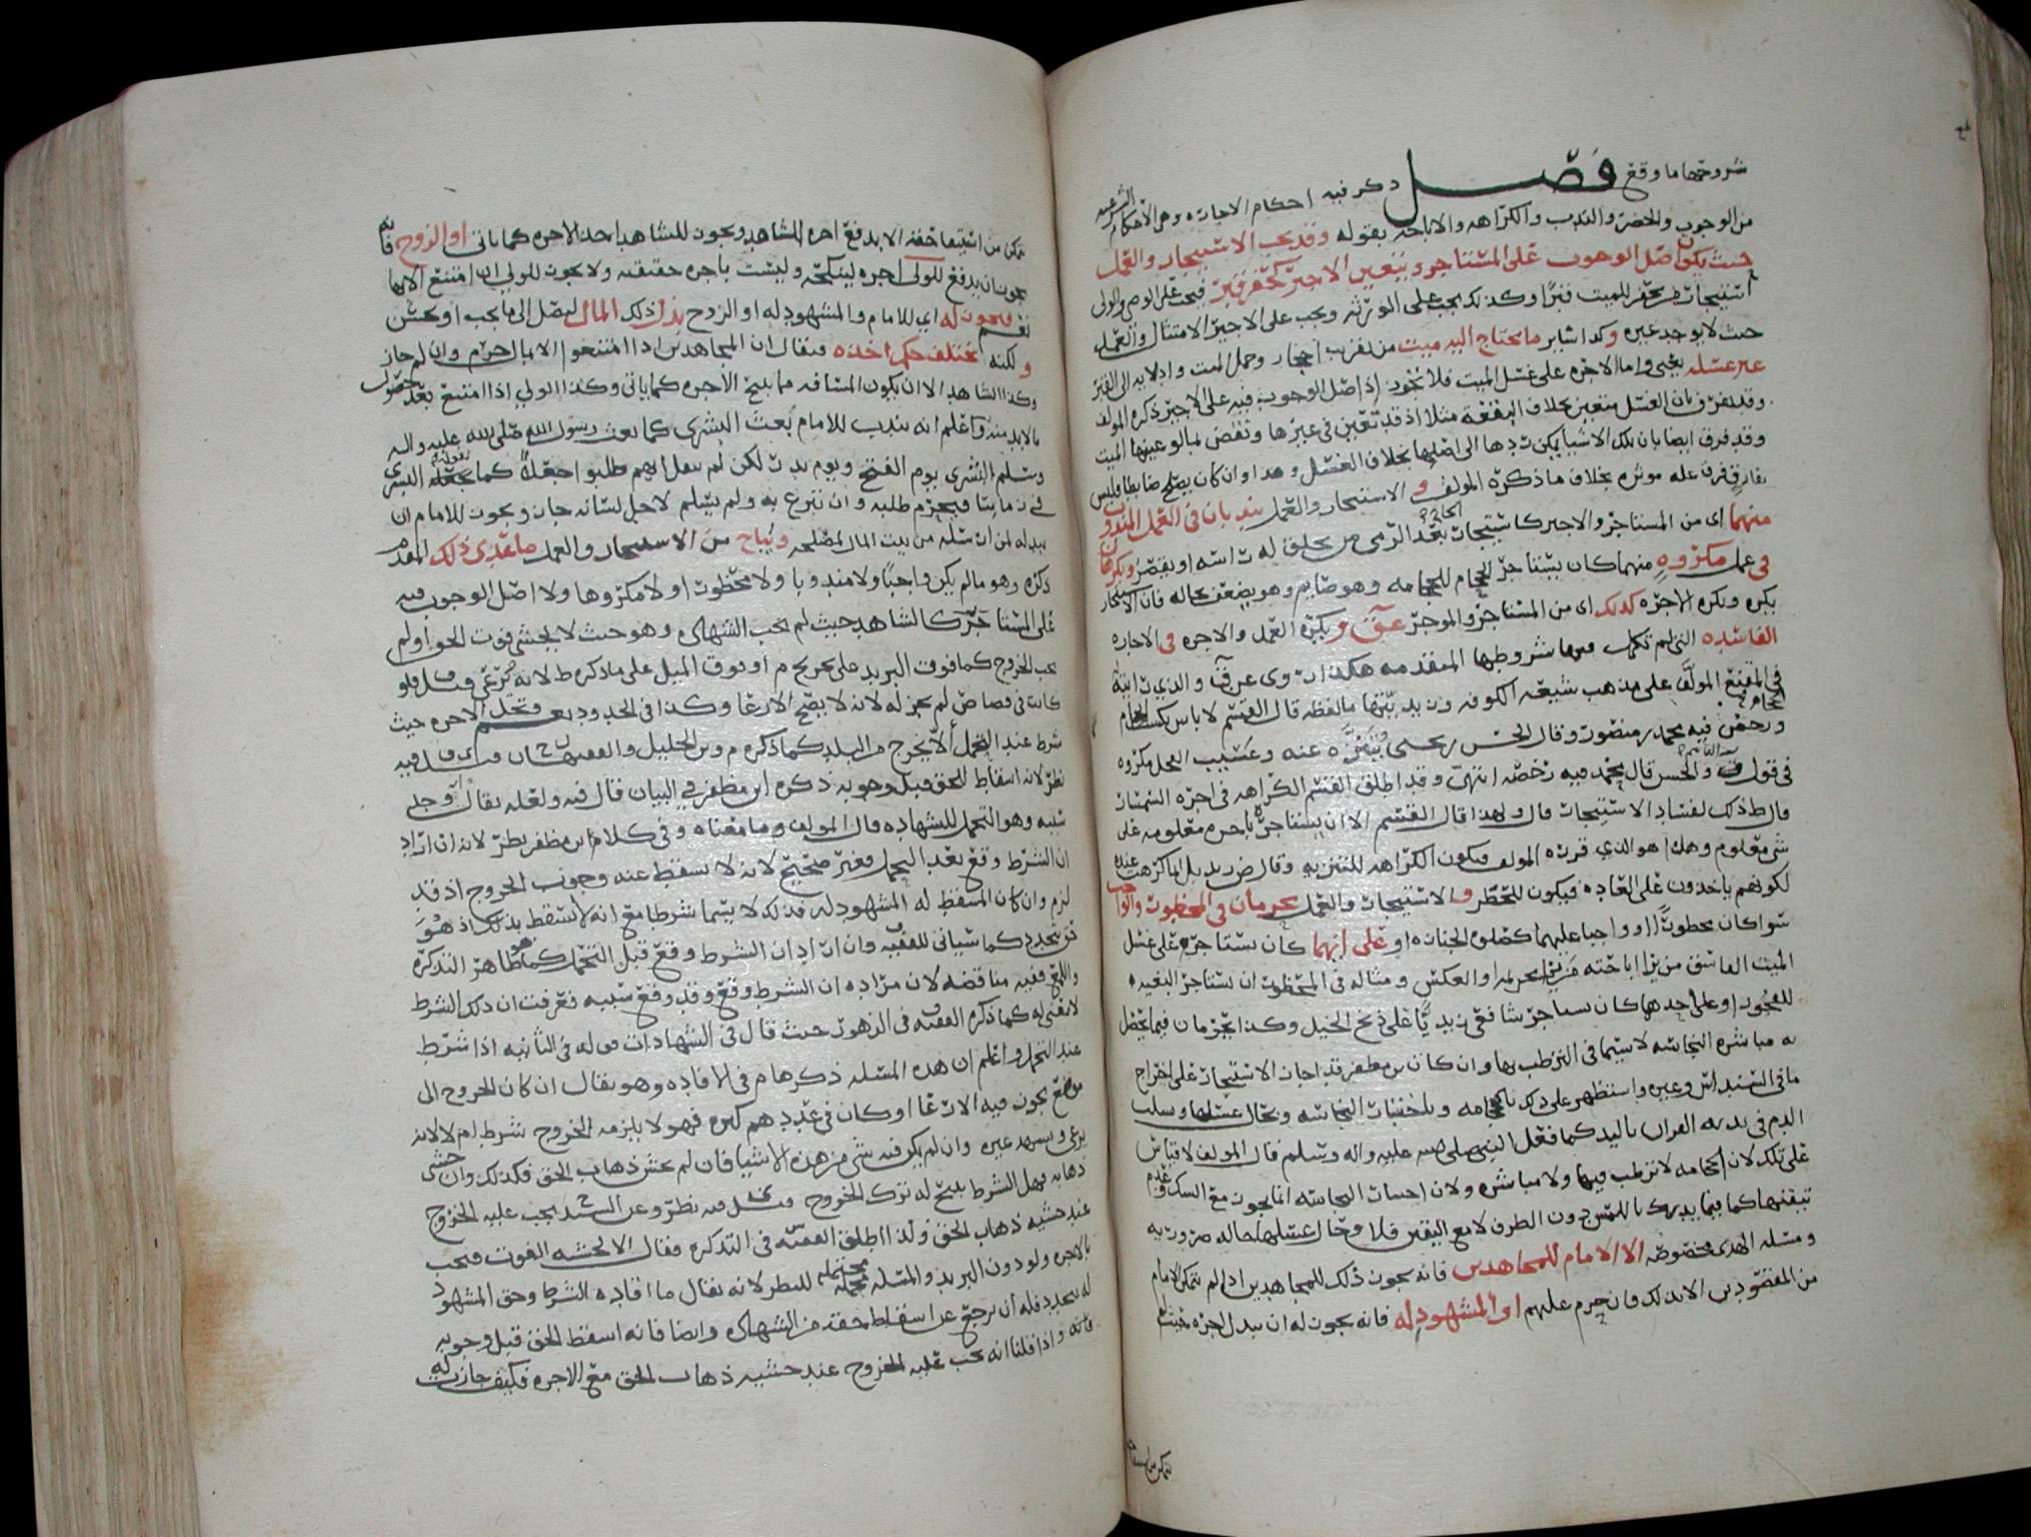 شروحها ما وقع فصل ذكر فيه احكام الاجاره وهى الاحكام الشرعيه
من الوجوب والحضر والندب والكراهه والاباحه بقوله وقد يجب الاستيجار والعمل
حيث يكون اصل الوجوب على المستاجر ويتعين الاجير كحفر قبر فيجب على الوصي والولى
استيجار من يحفر للميت قبرًا وكذلك يجب على الورثه ويجب على الاجير الامتثال والعمل
حيث لا يوجد غيره وكذا سائر ما يحتاج اليه ميت من تقريب احجار وحمل الميت وادلايه الى القبر
غير غسله يعني واما الاجره على غسل الميت فلا تجوز اذ اصل الوجوب فيه على الاجير ذكره المولف
وقد يفرق بان الغسل متعين بخلاف النفقة مثلا اذ قد تتعين في غيرها
وقد فرق ايضا بان تلك الاشيا يمكن ردها الى اصلها بخلاف الغسل وهذا وان كان يصلح ضابطا فليس
بفارق فرق عله موثره بخلاف ما ذكره المولف و الاستيجار والعمل يندبان في العمل المندوب
منهما اى من المستاجر والاجير كاستيجار بعد الرمي من يحلق له راسه او يقصر ويكرهان
في عمل مكروه منهما كان يستاجر الحجام للحجامه وهو صايم وهو يضعف حاله فان الاستيجار
يكره وتكره الاجره كذلك اى من المستاجر والموجر عق ويكره العمل والاجره في الاجاره
الفاسده التي لم تكمل فيها شروطها المتقدمه هكذا روى عن ق والذي رايته
في المقنع المولف على مذهب شيعه الكوفه ما لفظه قال القسم لا باس بكسب الحجام
ورخص فيه محمد بن منصور وقال الحسن بن يحيى يتنزه عنه وعسيب الفحل مكروه
في قول القاسم والحسن قال محمد فيه رخصه انتهى وقد اطلق القسم الكراهه في اجره السمسار
قال ط ذلك لفساد الاستيجار قال ولهذا قال القسم الا ان يستاجره باجره معلومه على
شى معلوم وهذا هو الذي قرره المولف فتكون الكراهه للتنزيه وقال ض زيد بل انما كرهت عنده
لكونهم ياخذون على العاده فيكون للحظر و الاستيجار والعمل يحرمان في المحظور والواجب
سوا كان محظورًا او واجبا عليهما كصلوة الجنازه او على ايهما كان يستاجر على غسل
الميت الفاسق من يرا اباحته من يرا تحريمه او العكس ومثاله في المحظور ان يستاجر البغيه
للفجور او على احدهما كان يستاجر شافعي زيديًا على ذبح الخيل وكذا يحرمان فيما يحصل
به مباشره النجاسه لا سيما في الترطب بها وان كان بن مظفر قد اجاز الاستيجار على اخراج
ما في السنداس وغيره واستظهر على ذلك بالحجامه
الدم في يديه باليد كما فعل النبي صلى الله عليه واله وسلم قال المولف لا قياس
على تلك لان الحجامه لا ترطب فيها ولا مباشره
ومسله الهدى مخصوصه الا الامام للمجاهدين فانه يجوز ذلك للمجاهدين اذا لم يتمكن الامام
من المقصود بهم الا بذلك فان حرم عليهم او المشهود له فانه يجوز له ان يبذل اجره حيث لم
يتمكن من استيفا
يتمكن من استيفا حقه الا بدفع اجره للشاهد ويجوز للشاهد اخذ الاجره كما ياتي او الزوج فانه
يجوز ان يدفع للولي اجره لينكحه وليست باجره حقيقه ولا يجوز للولي ان امتنع الا بها
فيجوز له اي للامام والمشهود له او الزوج بذل ذلك المال ليصل الى ما يجب او يحسن
ولكنه يختلف حكم اخذه فيقال ان المجاهدين اذا امتنعوا الا بمال حرم وان لم جاز
وكذا الشاهد الا ان يكون المسافه مما يبيح الاجره كما ياتي وكذا الولي اذا امتنع بعد حصول
ما لا بد منه واعلم انه يندب للامام بعث البشرى كما بعث رسول الله صلى الله عليه واله
وسلم البشرى يوم الفتح ويوم بدر لكن لم ينقل انهم طلبوا جعلاً كما يفعله البشرى
في زماننا فيحرم طلبه وان تبرع به ولم يسلم لاجل لسانه جاز ويجوز للامام ان
يبذله لمن ارسله من بيت المال لمصلحه ويباح من الاستيجار والعمل ما عدى ذلك المقدم
ذكره وهو ما لم يكن واجبًا ولا مندوبا ولا محظورا ولا مكروها ولا اصل الوجوب فيه
على المستاجر كالشاهد حيث لم يجب الشهاده وهو حيث لا يخشى فوت الحق او لم
يجب الخروج كما فوق البريد على تحريج م او فوق الميل على ما ذكره ط لانه
كانت في قصاص لم يجز له لانه لا يصح الارعا وكذا في الحدود وتحل الاجره حيث
شرط عند التحمل ألا يخرج من البلد كما ذكره م وبن الخليل والفقيهان ح ى ف قيل فيه
نظر لانه اسقاط للحق قبل وجوبه ذكره ابن مظفر في البيان قال فيه ولعله يقال قد وجد
سببه وهو التحمل للشهاده قال المولف وما معناه وفي كلام بن مظفر نظر لانه ان اراد
ان الشرط وقع بعد التحمل فغير صحيح لانه لا يسقط عنه وجوب الخروج اذ قد
لزم وان كان المسقط له المشهود له فذلك لا يسما شرطا مع انه لا يسقط بذلك اذ هو
حق يتجدد كما سياتي للفقيه وان اراد ان الشرط وقع قبل التحمل كما هو ظاهر التذكره
واللمع ففيه مناقضه لان مراده ان الشرط وقع وقد وقع سببه فعرفت ان ذلك الشرط
لا معنى له كما ذكره الفقيه ف في الزهور حيث قال في الشهادات قوله في الثانيه اذا شرط
عند التحمل واعلم ان هذه المسله ذكرها م في الافاده وهو يقال ان كان الخروج الى
موضع يجوز فيه الارعا او كان في عدد هم كثره فهو لا يلزمه الخروج شرط ام لا لانه
يرعى ويشهد غيره وان لم يكن فيه شى من هذه الاشيا فان لم يخش ذهاب الحق فكذلك وان خشى
ذهابه فهل الشرط يبيح له ترك الخروج قيل ى فيه نظر وعن السيد ح يجب عليه الخروج
عند خشيه ذهاب الحق ولذا اطلق الفقيه س في التذكره فقال الا لخشيه الفوت فيجب
بالاجره ولو دون البريد والمسله محتمله للنظر لانه يقال ما افاده الشرط وحق المشهود
له يتجدد فله ان يرجع عن اسقاط حقه من الشهاده وايضا فانه اسقط الحق قبل وجوبه
فانه واذا قلنا انه يجب عليه الخروج عند خشيه ذهاب الحق مع الاجره فكيف جاز له